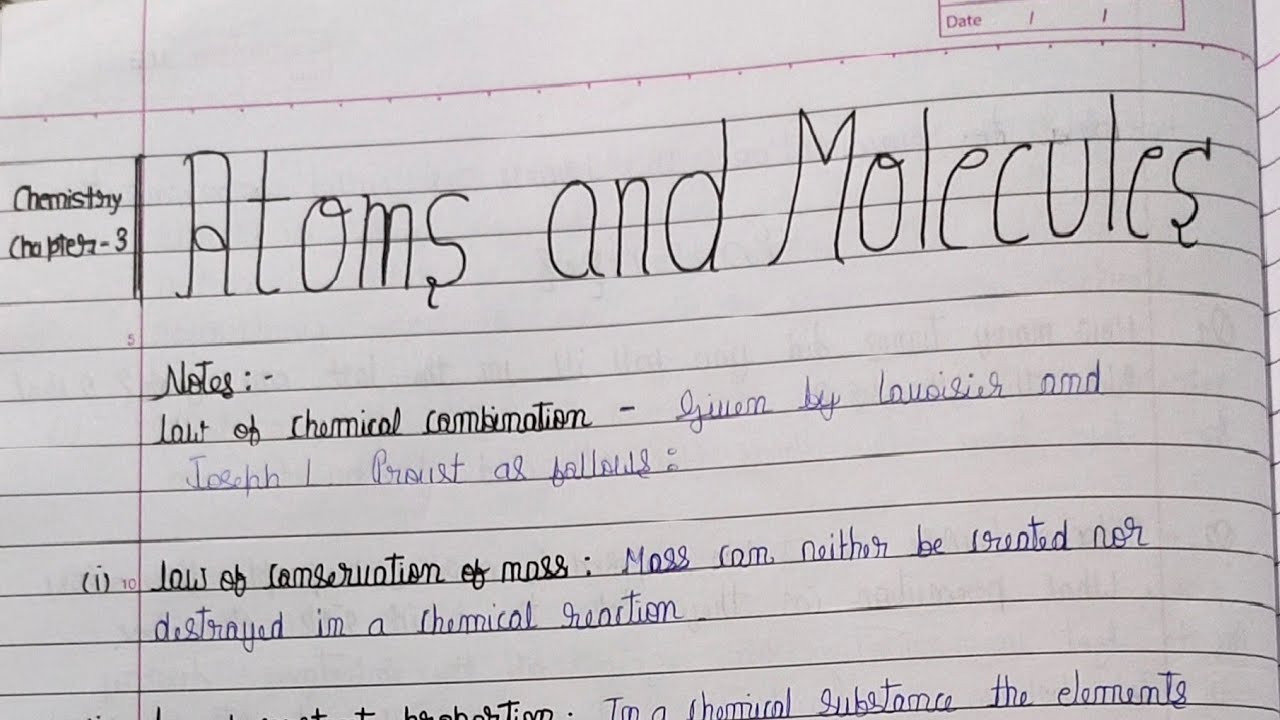 Date / /
Chemistry
Chapter-3
Atoms and Molecules
5
Notes:-
law of chemical combination - Given by Lavoisier and
Joseph L Proust as follows:
(i) 10 law of conservation of mass: Mass can neither be created nor
destroyed in a chemical reaction.
proportion: In a chemical substance the elements